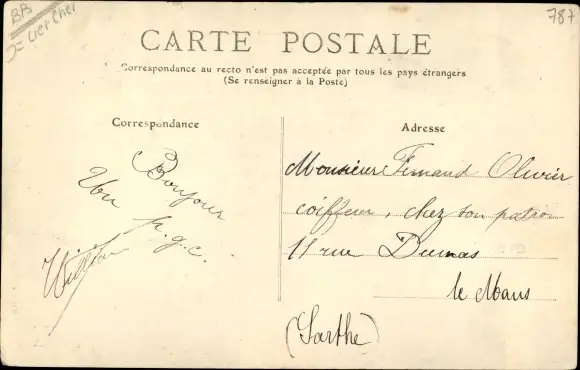 BB
Loir et Cher
787
CARTE POSTALE
Correspondance au recto n'est pas acceptée par tous les pays étrangers
(Se renseigner à la Poste)
Correspondance
Bonjour
p.g.c.
William
Adresse
Monsieur Fernand Olivier
coiffeur, chez son patron
11 rue Dumas
le Mans
(Sarthe)